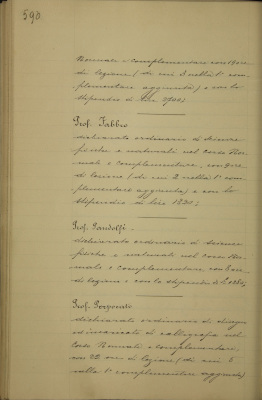 590.
Normale e complementare con 19 ore
di lezione (di cui 3 nella 1ª com-
plementare aggiunta) e con lo
stipendio di Lire
Prof. Fabbro
dichiarato ordinario di Scienze
fisiche e naturali nel corso Nor-
male e complementare, con ore
di lezione (di cui 2 nella 1ª com-
plementare aggiunta) e con lo
stipendio di Lire 1820;
Prof. Pandolfi -
dichiarato ordinario di Scienze
fisiche e naturali nel corso Nor-
male e complementare con ore
di lezione e con lo stipendio di
Prof. Porporato
dichiarato ordinario di disegno
ed incaricato di calligrafia nel
corso Normale e complementare
con 22 ore di lezioni (di cui 5
nella 1ª complementare aggiunta)